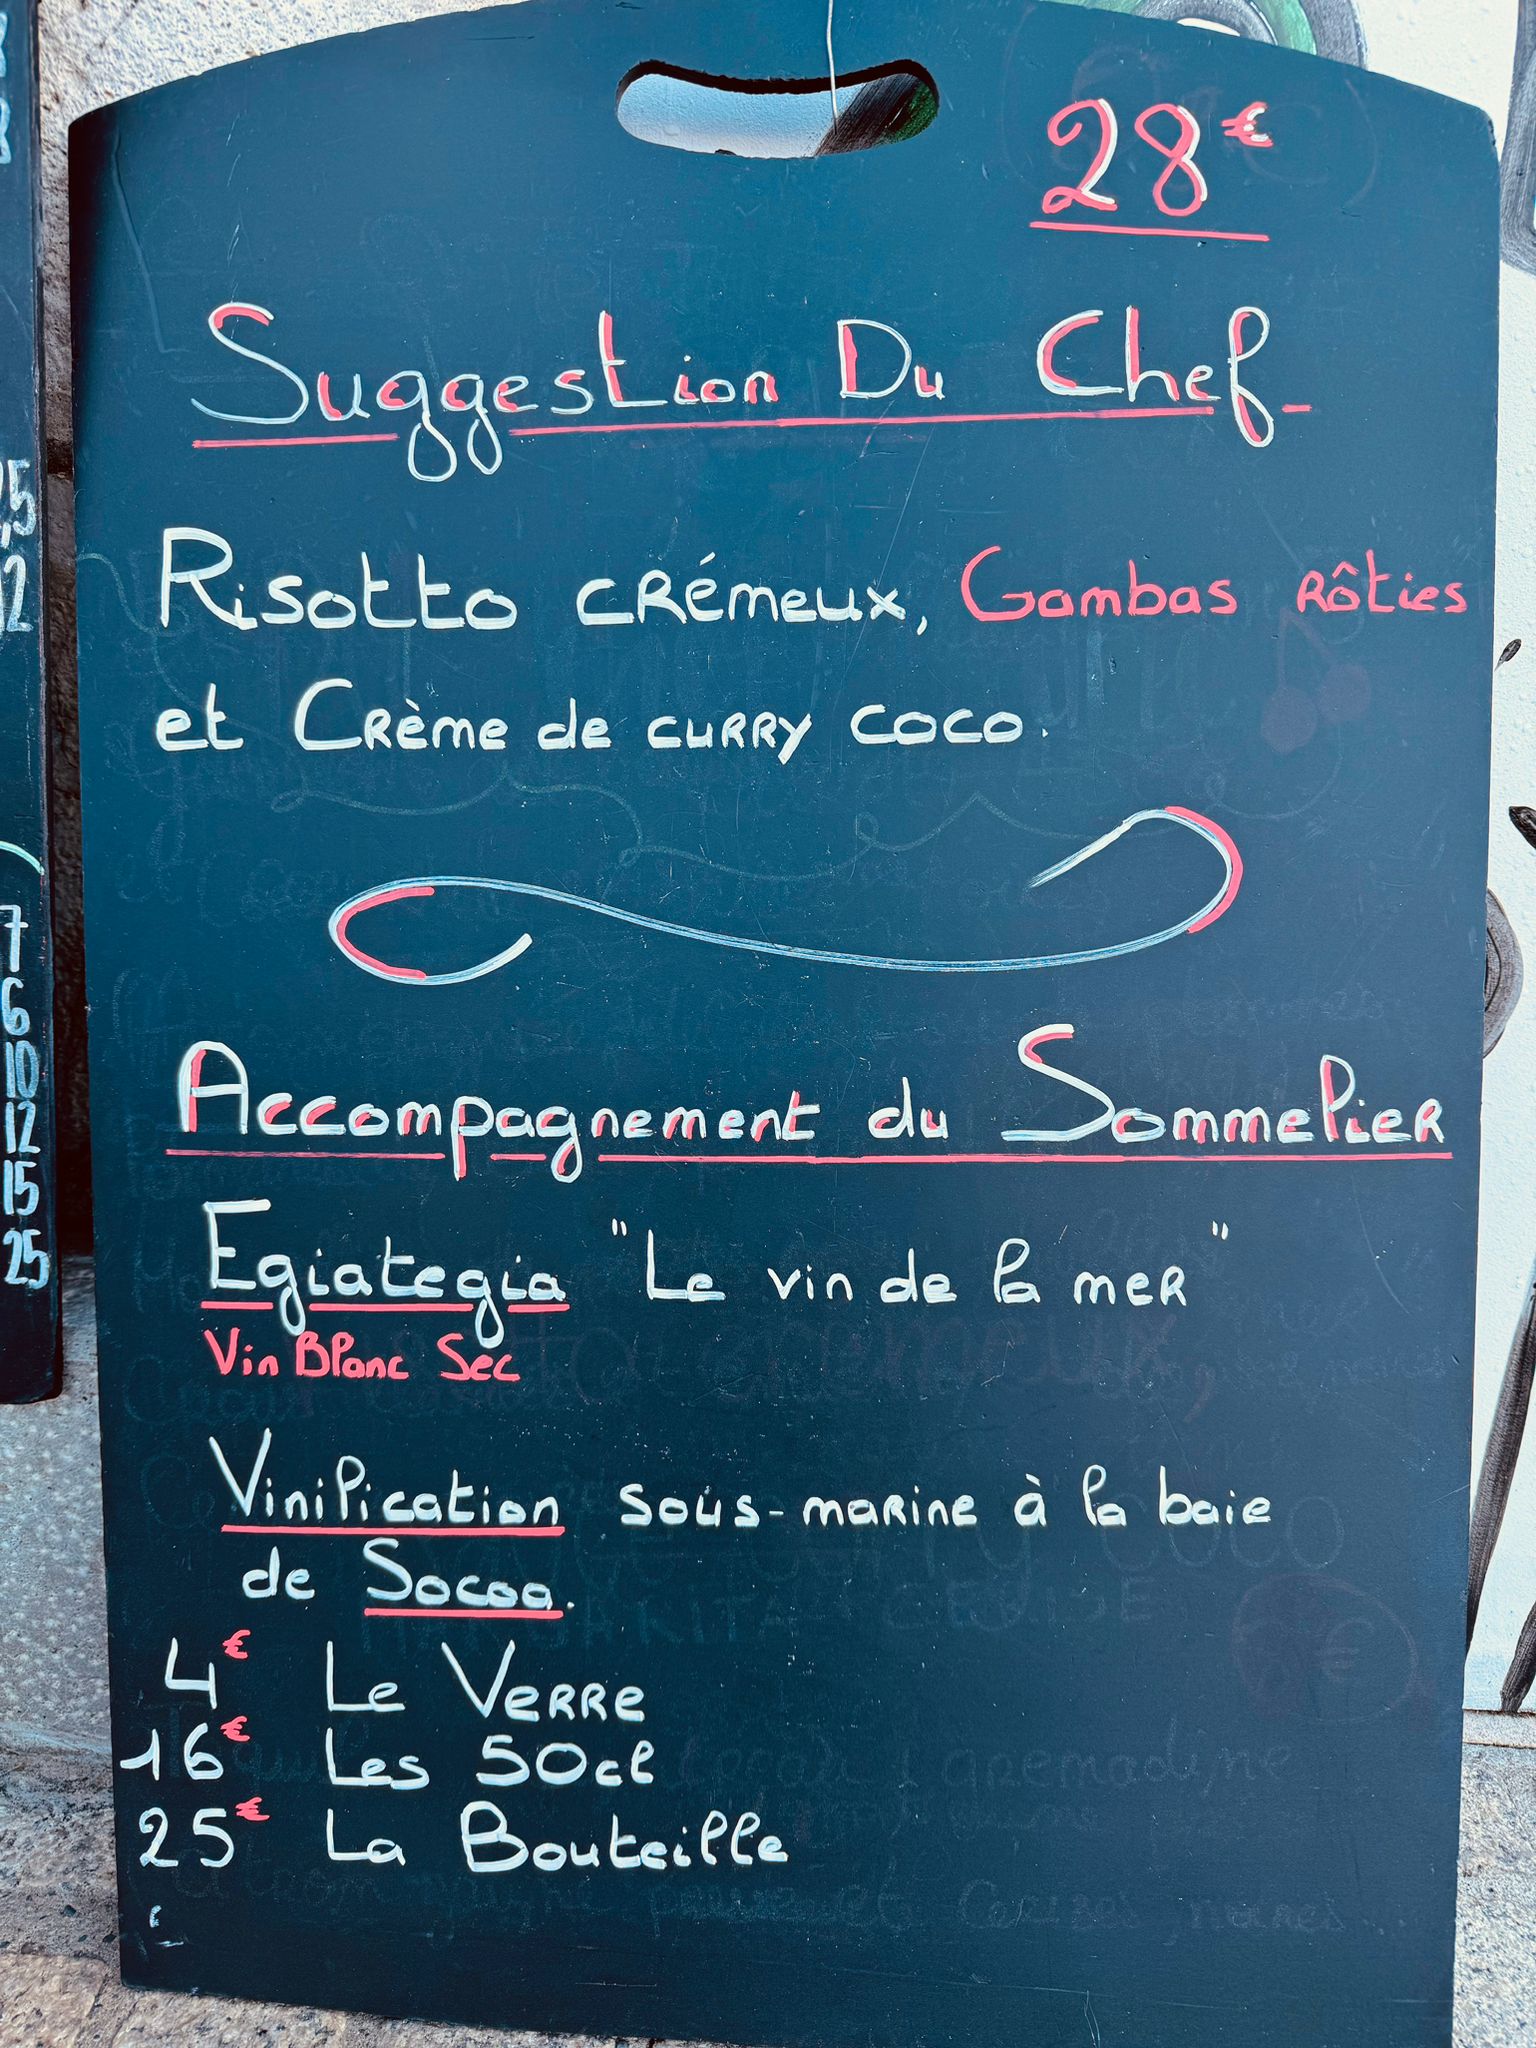 28€
Suggestion Du Chef
Risotto crémeux, Gambas rôties
et Crème de curry coco.
Accompagnement du Sommelier
Egiategia "Le vin de la mer"
Vin Blanc Sec
Vinification sous-marine à la baie
de Socoa.
4€ Le Verre
16€ Les 50cl
25€ La Bouteille
12
7
6
10
12
15
25